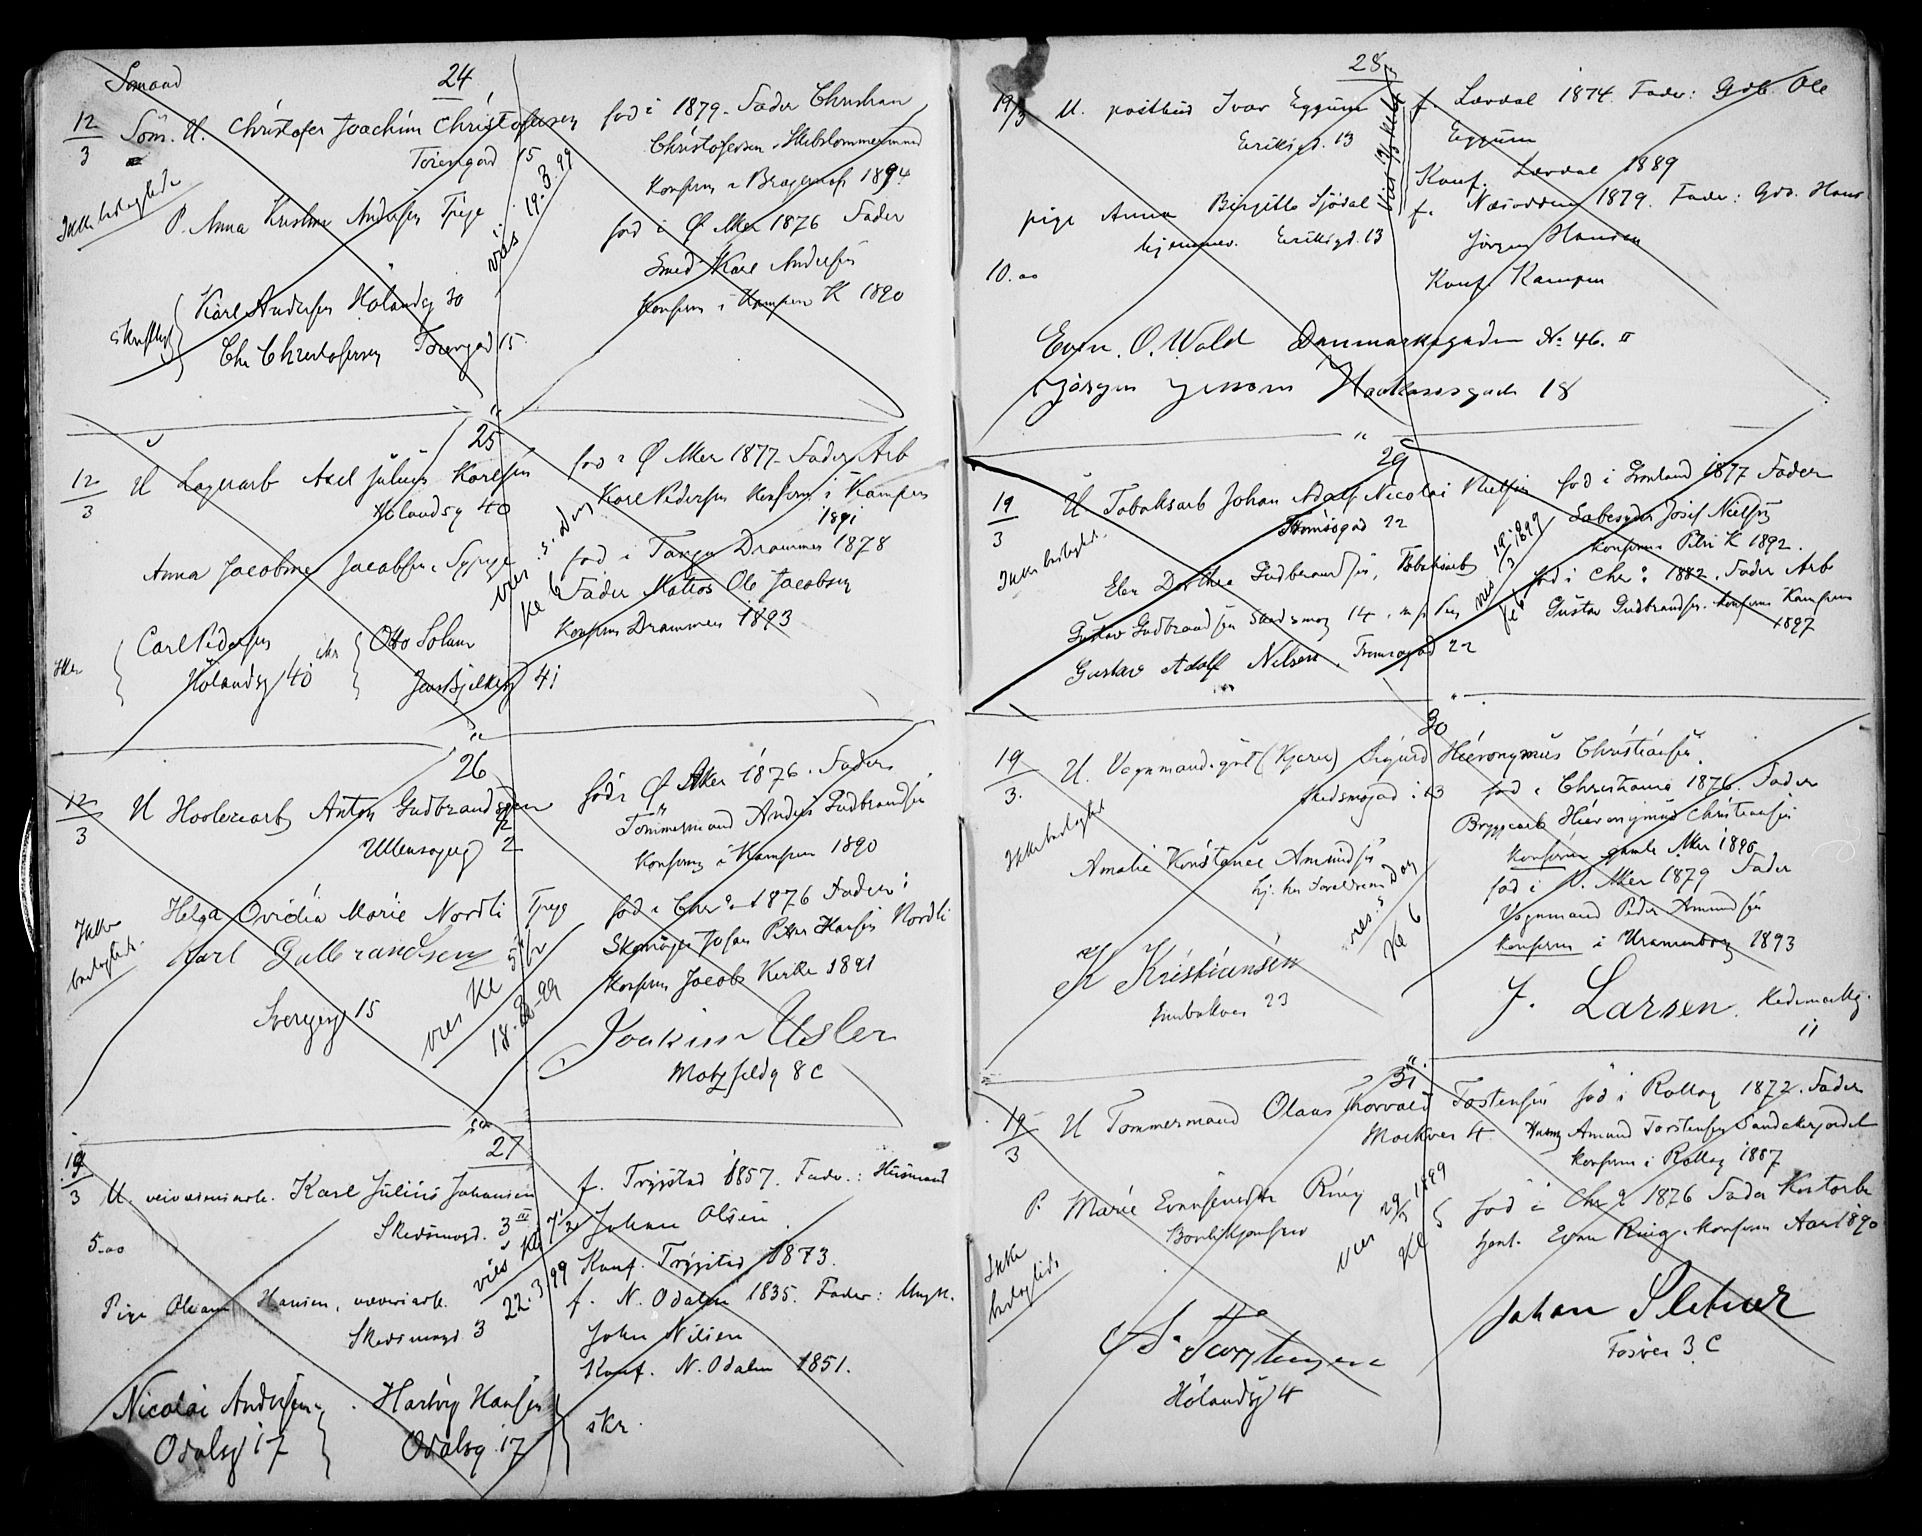 24
Sömand
12/3 Söm. U. Christofer Joachim Christofersen
Töiengad 15
P. Anna Kristine Andersen Tjpige
Ikke beslegtede
Karl Andersen Hölandsg 30
Chr Christofersen Töiengad 15
vies 19.3.99
fød i 1879. Fader Christian
Christofersen Skibstømmermand
Konfirm i Bragernes 1894
fød i Ø Aker 1876 Fader
Smed Karl Andersen
Konfirm i Kampen K 1890
25
12/3 U Lagerarb Axel Julius Karlsen
Hölandsg 40
Anna Jacobine Jacobsen, Sypige
Carl Pedersen
Hölandsg 40
Otto Solum
Jens Bjelkesg 41
vies
Kl 6
fød i Ø Aker 1877. Fader Arb
Karl Pedersen Konfirm i Kampen
1891
fød i Tangen Drammen 1878
Fader Matros Ole Jacobsen
Konfirm Drammen 1893
26
12/3 U Høvleriarb Anton Gudbrandsen
Ullensagerg 2
Helga Ovidia Marie Nordli Tpige
Ikke beslegtede.
Karl Gulbrandsen
Sverresg 15
vies Kl 5
18.3.99
född i Ø Aker 1876. Fader
Tömmermand Anders Gudbrandsen
Konfirm i Kampen 1890
fød i Chra 1876 Fader:
Skomager Johan Peter Hansen Nordli
Konfirm Jacobs Kirke 1891
Joakim Usler
Motzfeldtg 8 C
27
19/3 U. veivæsensarb. Karl Julius Johansen
Skedsmogd. 3 III
5.00
Pige Oleane Hansen, væveriarb.
Skedsmogd 3
Nicolai Andersen
Odalsg 17
Hartvig Hansen
Odalsg. 17
skr.
vies Kl 7½
22.3.99
f. Trögstad 1857. Fader: Husmand
Johan Olsen.
Konf. Trögstad 1873.
f. N. Odalen 1835. Fader: Ungk.
John Nilsen
Konf. N. Odalen 1851.
28
19/3 U. postbud Ivar Eggum
Eriksgd. 13
pige Anna Birgitte Sjödal
hjemmev. Eriksgd. 13
10.00
f. Lærdal 1874. Fader: Gdb. Ole
Eggum
Konf. Lærdal 1889
f. Næsodden 1879. Fader: Gdb. Hans
Jörgen Hansen
Konf. Kampen
Even. O. Wold Danmarksgaden No. 46. II
Jörgen Jensen Haakonsgade 18
29
19/3 U Tobaksarb Johan Adolf Nicolai Nielsen
Tromsögad 22
Ikke beslegt.
Elen Dorthea Gudbrandsen, Tobaksarb
Gustav Gudbrandsen Skedsmog 14
Gustav Adolf Nilsen, Tromsogad 22
vies 19/3 1899
Kl 6
fød i Grønland 1877 Fader
Sæbesyder Josef Nielsen
Konfirm Petri K 1892.
fød i Chra 1882. Fader Arb
Gustav Gudbrandsen. Konfirm Kampen
1897
30
19/3. U. Vognmandsgut (Kjører) Sigurd Hieronymus Christiansen
Skedsmogad 13
Ikke beslegtet
Amalie Konstance Amundsen
hj. hos Forældrene
K Kristiansen
Enebakvei 23
vies
Kl 6
fød i Christiania 1876. Fader
Bryggearb Hieronymus Christiansen
Konfirm gamle Aker 1890
fød i V. Aker 1879 Fader
Vognmand Peder Amundsen
Konfirm i Uranienborg 1893
J. Larsen. Hedemarkg.
11
31
19/3 U Tømmermand Olaus Thorvald Tostensen fød i Rollag 1872. Fader
Markvei 4. Husm Amund Torstensen Sandakerjordet
Konfirm i Rollag 1887
P. Marie Evensensdtr Ring
Bordikjomfru
Ikke beslegtede
vies 29/3 1899
Kl 5
fød i Chra 1876 Fader Kontorbe
tjent. Even Ring. Konfirm Aas 1890
S. Torstensen
Hölandsg 4
Johan Sletner
Fosvei 3 C